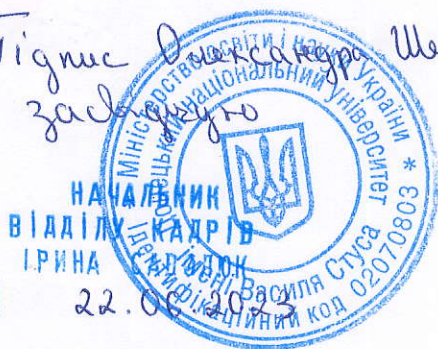 Підпис Олександра Ше
засвідчую
НАЧАЛЬНИК
ВІДДІЛУ КАДРІВ
ІРИНА
22.06.2023
Міністерство освіти і науки України *
Донецький національний університет
імені Василя Стуса
Ідентифікаційний код 02070803